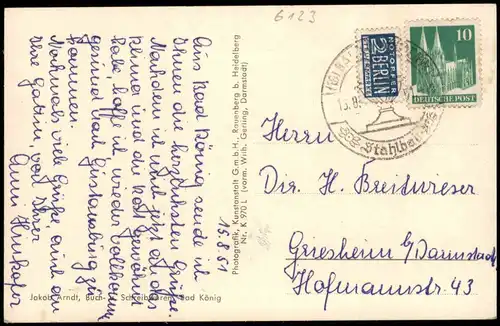 6123
Aus Bad König sende ich
Ihnen die herzlichsten Grüße.
Nachdem ich und jetzt an das
Klima und die Kost gewöhnt
habe, hoffe ich wieder vollkommen
gesund nach Gustavsburg zu
kommen.
Nochmals viele Grüße, auch an
Ihre Gattin, von Ihrer
Anni
15.8.51
Photografie, Kunstanstalt G.m.b.H., Rauenberg b. Heidelberg
Nr. K 970 L (vorm. Wilh. Gerling, Darmstadt)
Jakob Arndt, Buch- Schreibwaren, Bad König
NOTOPFER
2 BERLIN
STEUERMARKE
10
DEUTSCHE POST
Stahlbad
Herrn
Dir. H. Breitwieser
Griesheim b/Darmstadt
Hofmannstr. 43